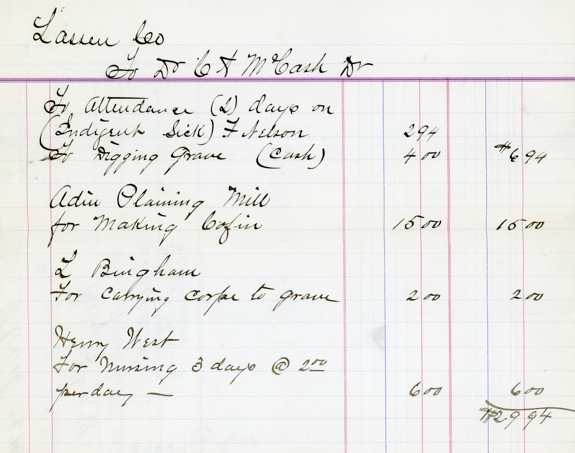 Lassen Co
To Dr C A McCash Dr
To Attendance (2) days on
(Indigent Sick) F Nelson 294
To Digging Grave (Cash) 400 $694
Adin Plaining Mill
for Making Cofin 1500 1500
L Bingham
For carrying corpse to grave 200 200
Henry West
For Nursing 3 days @ 200
per day — 600 600
$2994